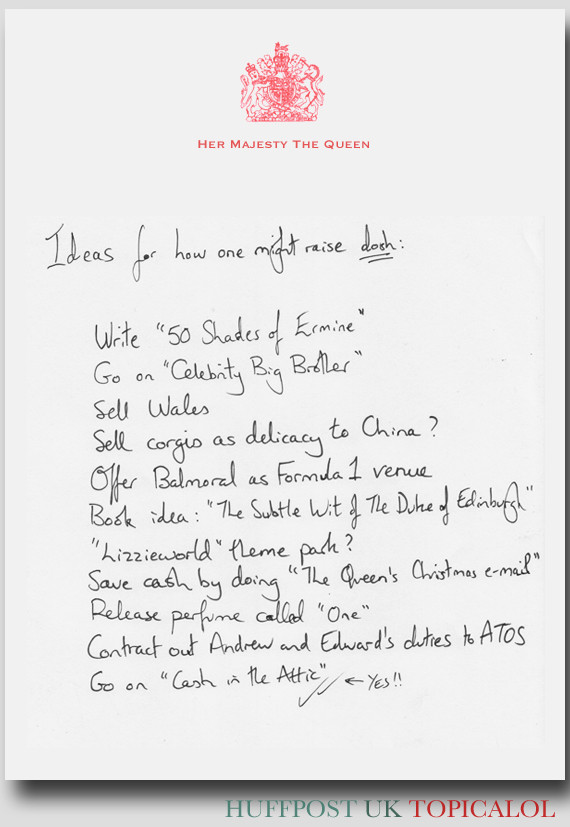 HER MAJESTY THE QUEEN
Ideas for how one might raise dosh:
Write "50 Shades of Ermine"
Go on "Celebrity Big Brother"
Sell Wales
Sell corgis as delicacy to China?
Offer Balmoral as Formula 1 venue
Book idea: "The Subtle Wit of The Duke of Edinburgh"
"Lizzieworld" theme park?
Save cash by doing "The Queen's Christmas e-mail"
Release perfume called "One"
Contract out Andrew and Edward's duties to ATOS
Go on "Cash in the Attic" ← YES!!
HUFFPOST UK TOPICALOL